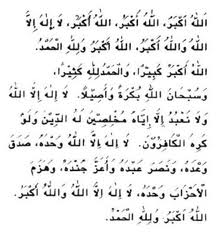 اَللهُ اَكْبَرُ، اَللهُ اَكْبَرُ، اَللهُ اَكْبَرُ، لَا إِلٰهَ إِلَّا
اللهُ وَاللهُ اَكْبَرُ، اَللهُ اَكْبَرُ وَلِلّٰهِ الْحَمْدُ.
اَللهُ اَكْبَرُ كَبِيْرًا، وَالْحَمْدُلِلّٰهِ كَثِيْرًا،
وَسُبْحَانَ اللهِ بُكْرَةً وَأَصِيْلًا. لَا إِلٰهَ إِلَّا اللهُ
وَلَا نَعْبُدُ إِلَّا إِيَّاهُ مُخْلِصِيْنَ لَهُ الدِّيْنَ وَلَوْ
كَرِهَ الْكَافِرُوْنَ. لَا إِلٰهَ إِلَّا اللهُ وَحْدَهُ، صَدَقَ
وَعْدَهُ، وَنَصَرَ عَبْدَهُ وَأَعَزَّ جُنْدَهُ، وَهَزَمَ
الْأَحْزَابَ وَحْدَهُ، لَا إِلٰهَ إِلَّا اللهُ وَاللهُ اَكْبَرُ.
اَللهُ اَكْبَرُ وَلِلّٰهِ الْحَمْدُ.